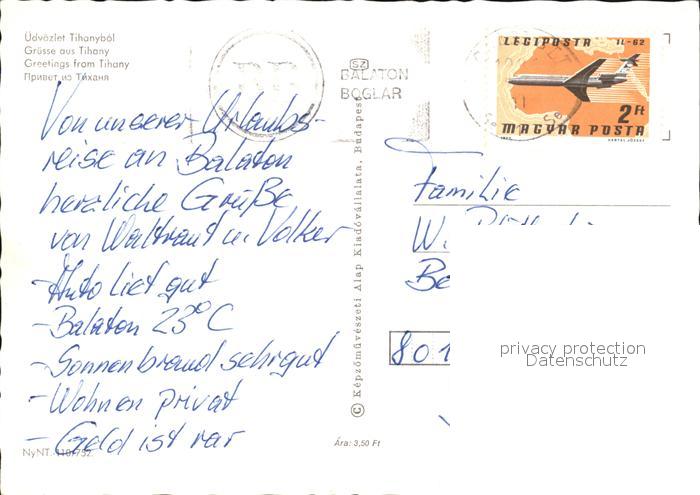 Üdvözlet Tihanyból
Grüsse aus Tihany
Greetings from Tihany
Привет из Тиханя
Von unserer Urlaubs-
reise an Balaton
herzliche Grüße
von Waltraut u. Volker
- Auto lief gut
- Balaton 23°C
- Sonnenbrand sehr gut
- Wohnen privat
- Geld ist rar
NyNT.
Ára: 3,50 Ft
© Képzőművészeti Alap Kiadóvállalata, Budapest
SZ
BALATON
BOGLÁR
LÉGIPOSTA IL-62
2 Ft
MAGYAR POSTA
Familie
W.
Be
801
privacy protection
Datenschutz